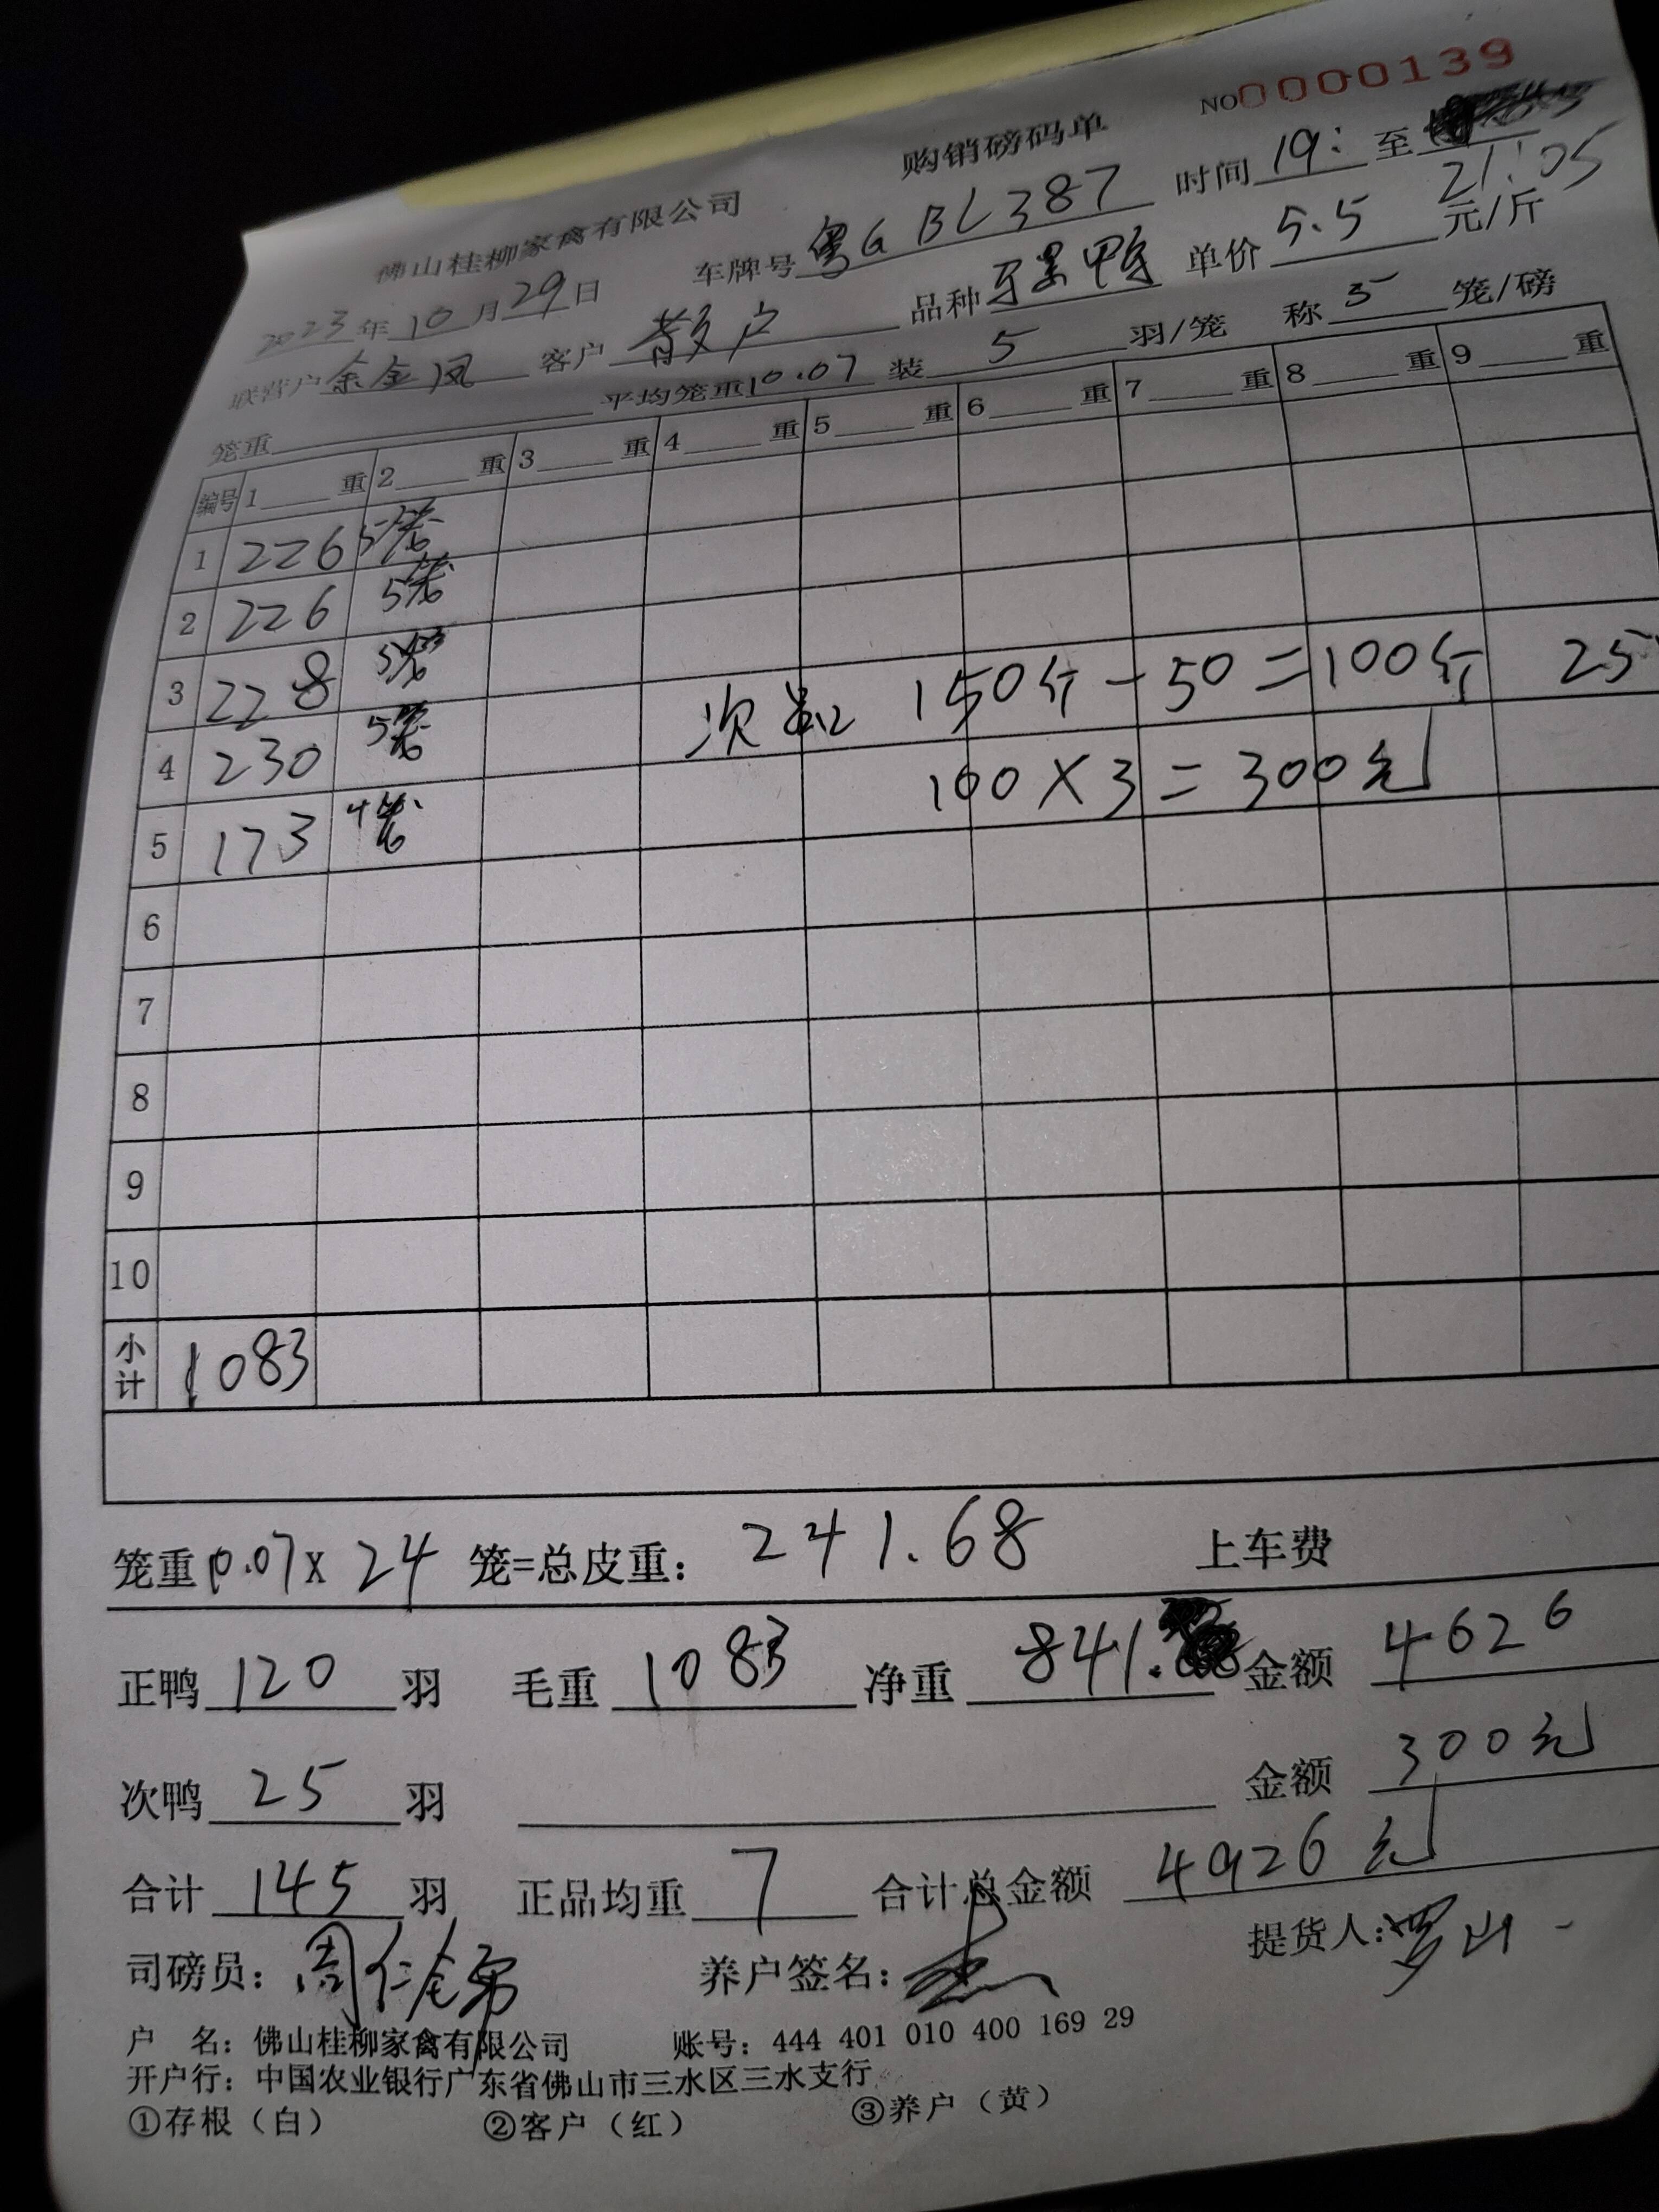 NO0000139
购销磅码单
佛山桂柳家禽有限公司 车牌号 粤G BL387 时间 19: 至 21:05
2023年10月29日 客户 散户 品种 单价 5.5 元/斤
联营户 余金凤 平均笼重10.07 装 5 羽/笼 称 5 笼/磅
笼重
编号 1 重 2 重 3 重 4 重 5 重 6 重 7 重 8 重 9 重
1 226 5笼
2 226 5笼
3 228 5笼 次 150斤-50=100斤 25
4 230 5笼 100×3=300元
5 173 4笼
6
7
8
9
10
小计 1083
笼重10.07x 24 笼=总皮重: 241.68 上车费
正鸭 120 羽 毛重 1083 净重 841. 金额 4626
次鸭 25 羽 金额 300元
合计 145 羽 正品均重 7 合计总金额 4926元
司磅员: 养户签名: 提货人:
户 名: 佛山桂柳家禽有限公司 账号: 444 401 010 400 169 29
开户行: 中国农业银行广东省佛山市三水区三水支行
①存根(白) ②客户(红) ③养户(黄)